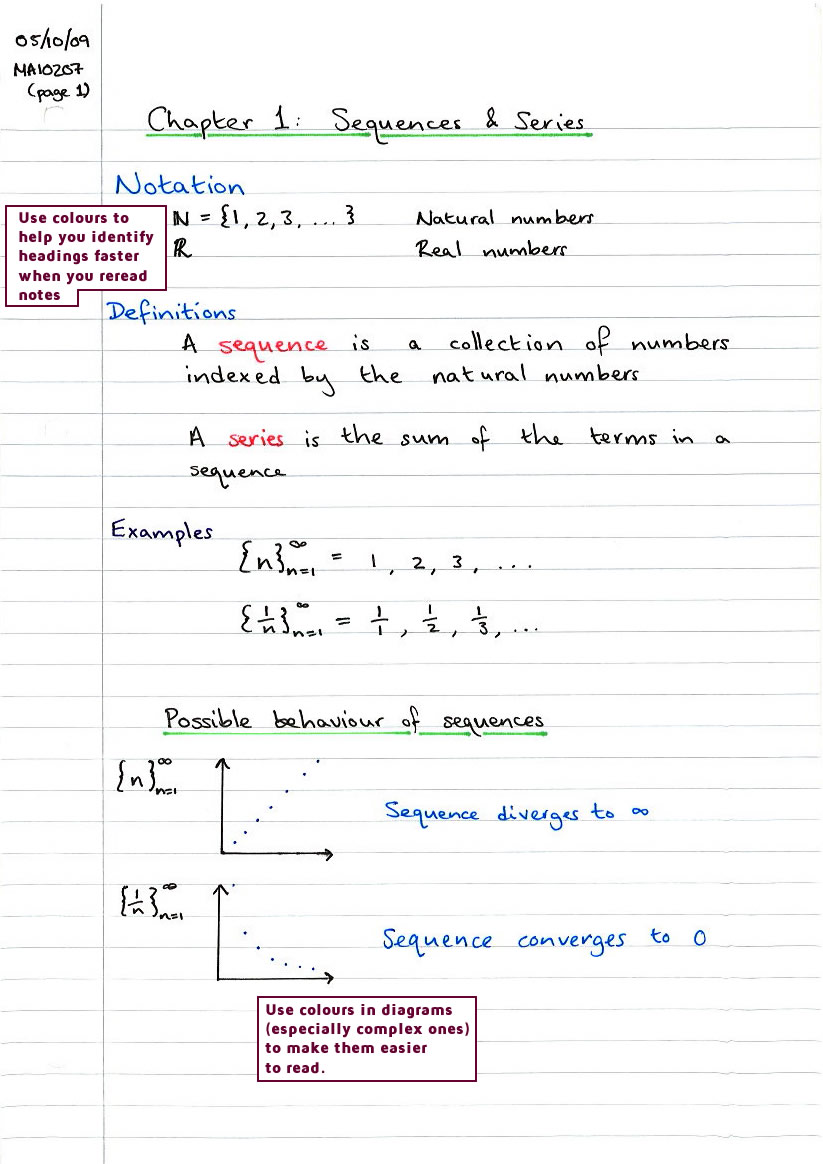 05/10/09
MA10207
(page 1)
Chapter 1: Sequences & Series
Notation
Use colours to
help you identify
headings faster
when you reread
notes
ℕ = {1, 2, 3, ... } Natural numbers
ℝ Real numbers
Definitions
A sequence is a collection of numbers
indexed by the natural numbers
A series is the sum of the terms in a
sequence
Examples
{n}_{n=1}^∞ = 1, 2, 3, ...
{1/n}_{n=1}^∞ = 1/1, 1/2, 1/3, ...
Possible behaviour of sequences
{n}_{n=1}^∞ Sequence diverges to ∞
{1/n}_{n=1}^∞ Sequence converges to 0
Use colours in diagrams
(especially complex ones)
to make them easier
to read.